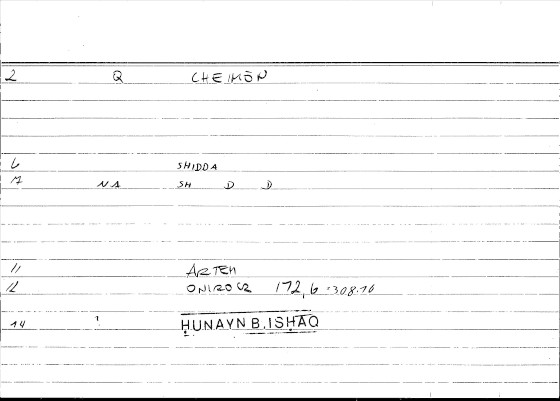 2 Q CHEIMŌN
6 SHIDDA
7 NA SH D D
11 ARTEM
12 ONIROCR 172,6 :308.16
14 1 ḤUNAYN B. ISḤĀQ